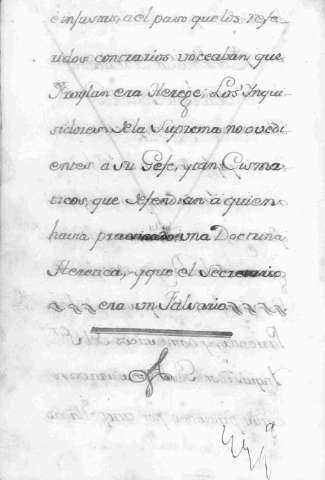 e injusto, a el paso que los refe-
ridos contrarios voceaban que
Froylan era Herege, Los Ynqui-
sidores de la Suprema no ovedi-
entes à su Gefe, y tan Cisma-
ticos, que defendian à quien
havia practicado una Doctrina
Heretica, y que el Secretario
era un Falsario